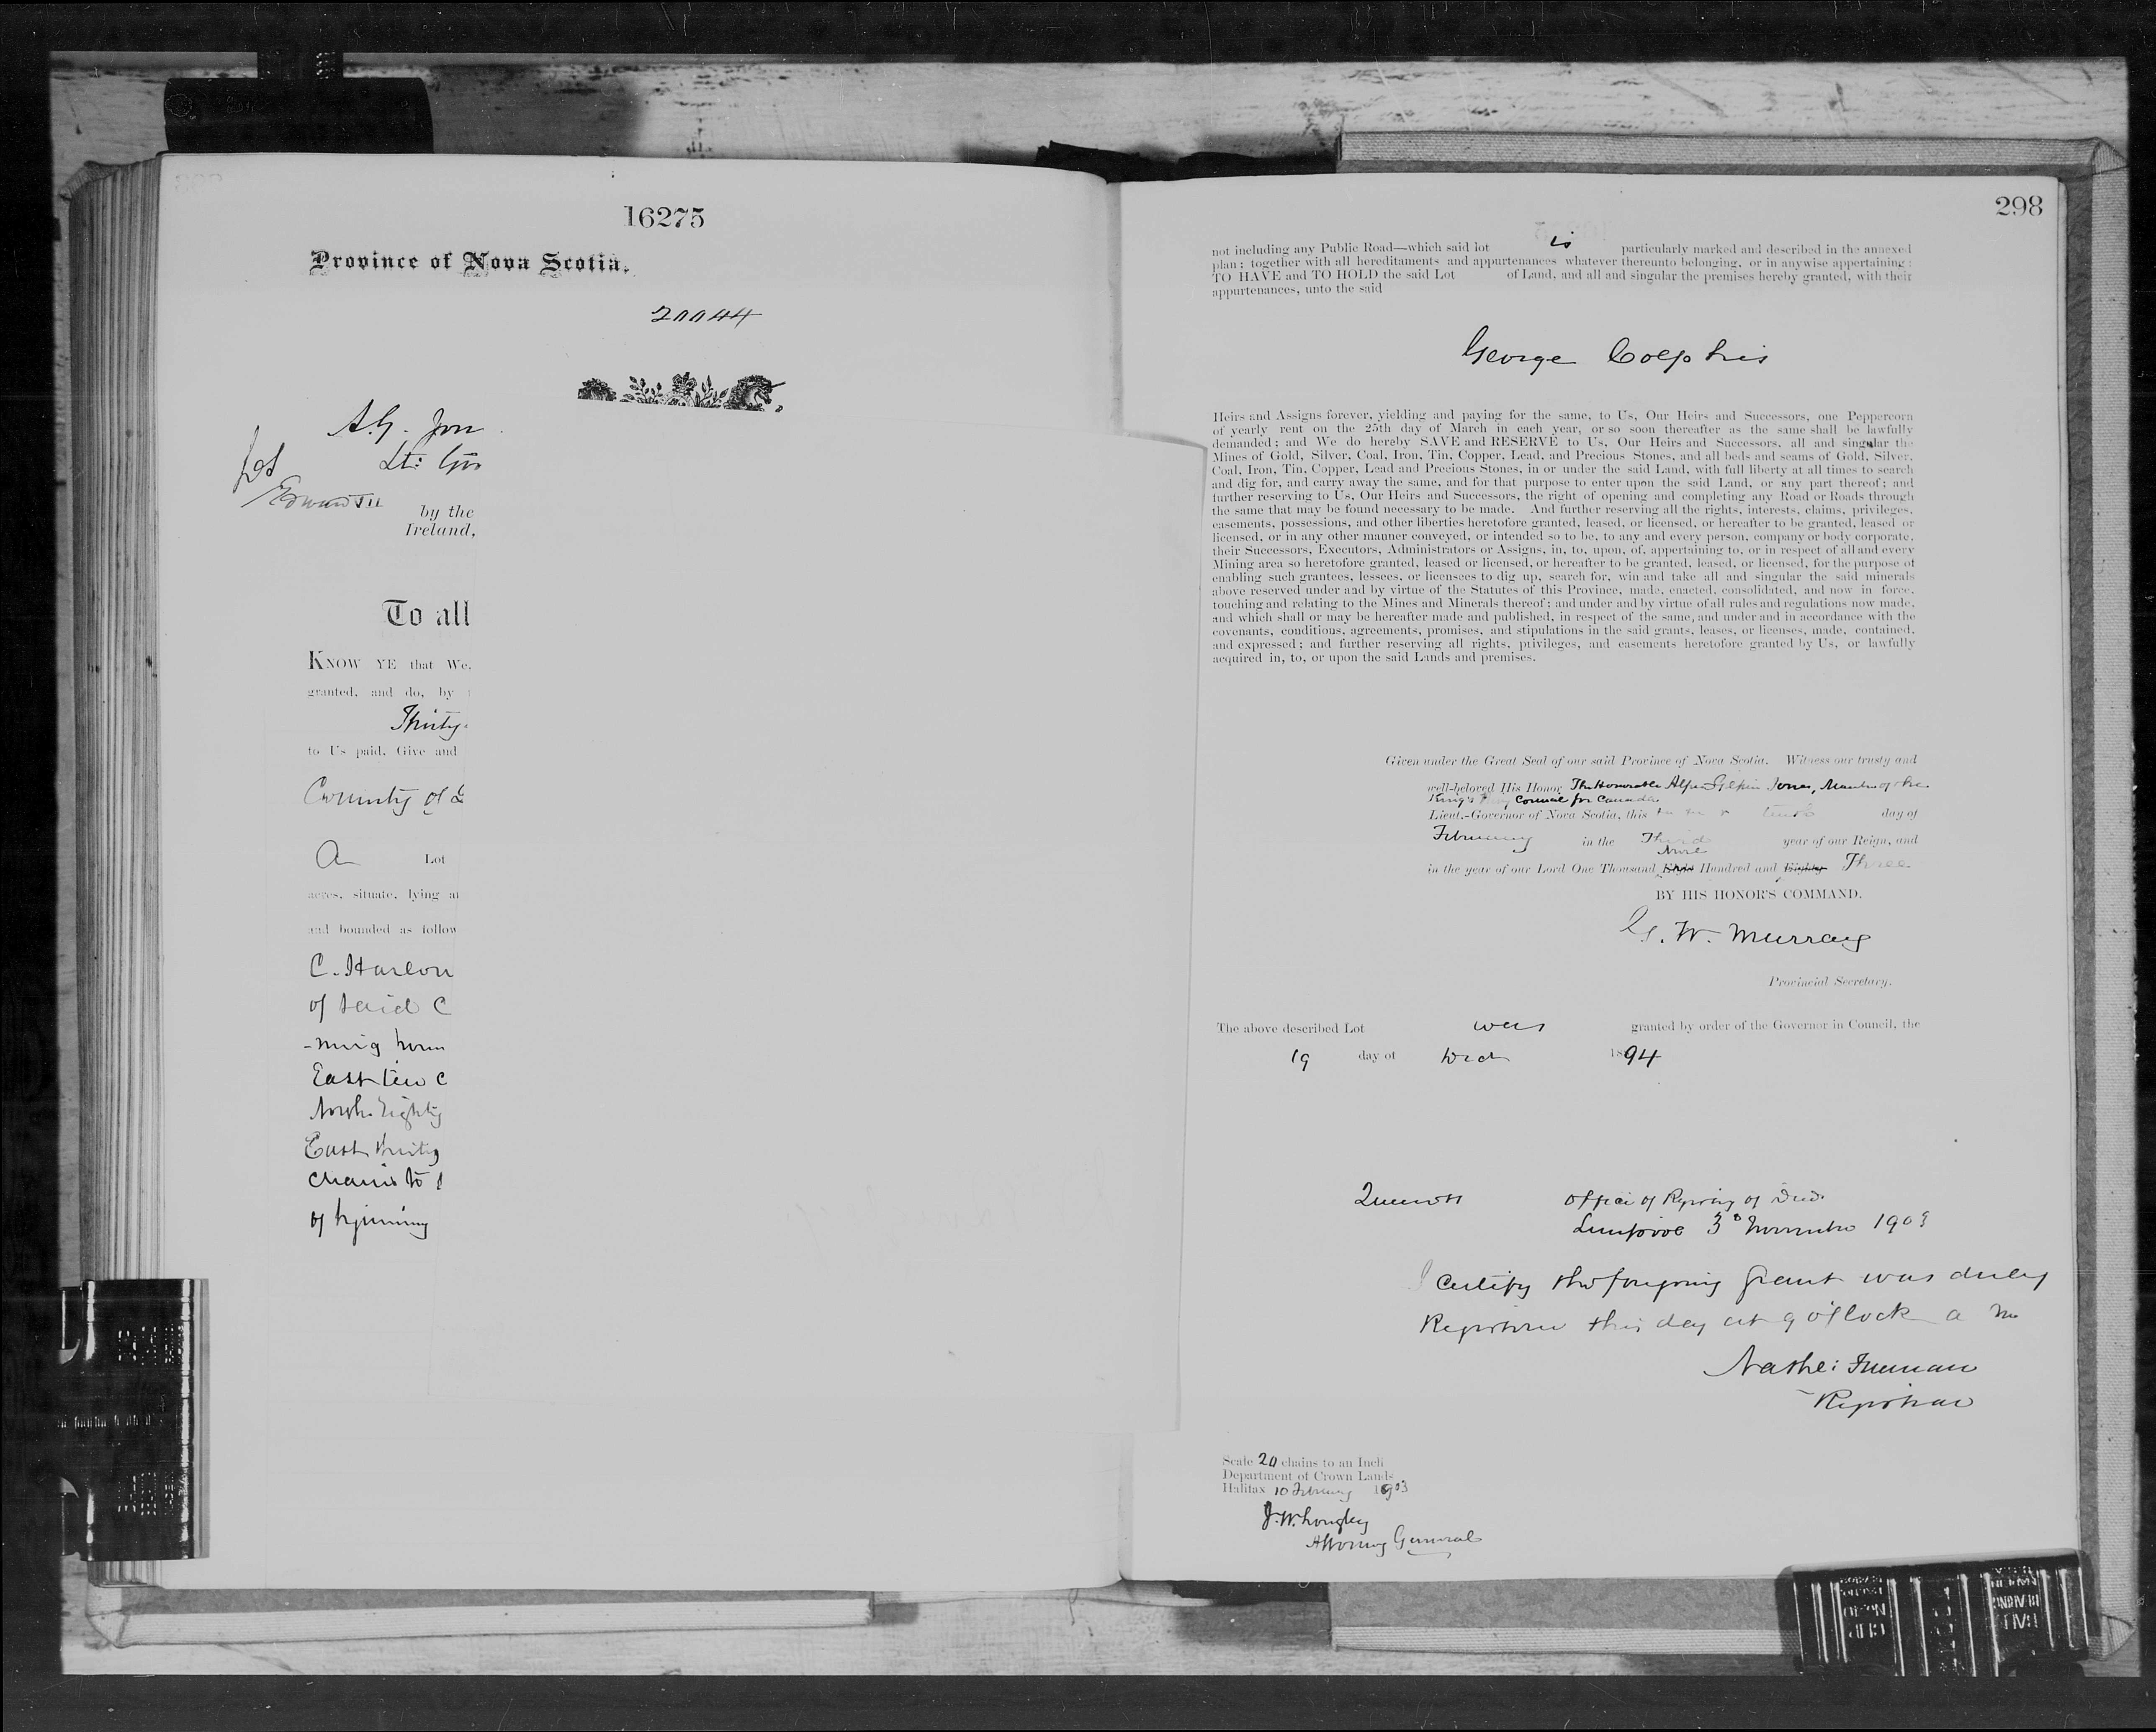 16275
Province of Nova Scotia.
20044
A.G. Jon
Lt: Gov
Edward VII
by the
Ireland,
To all
KNOW YE that We,
granted, and do, by
Thirty
to Us paid, Give and
County of
A Lot
acres, situate, lying an
and bounded as follow
C. Harlow
of said C
-ning from
East ten C
North Eighty
East thirty
chains to
of beginning
298
not including any Public Road—which said lot is particularly marked and described in the annexed
plan; together with all hereditaments and appurtenances whatever thereunto belonging, or in anywise appertaining:
TO HAVE and TO HOLD the said Lot of Land, and all and singular the premises hereby granted, with their
appurtenances, unto the said
George Colp his
Heirs and Assigns forever, yielding and paying for the same, to Us, Our Heirs and Successors, one Peppercorn
of yearly rent on the 25th day of March in each year, or so soon thereafter as the same shall be lawfully
demanded; and We do hereby SAVE and RESERVE to Us, Our Heirs and Successors, all and singular the
Mines of Gold, Silver, Coal, Iron, Tin, Copper, Lead, and Precious Stones, and all beds and seams of Gold, Silver,
Coal, Iron, Tin, Copper, Lead and Precious Stones, in or under the said Land, with full liberty at all times to search
and dig for, and carry away the same, and for that purpose to enter upon the said Land, or any part thereof; and
further reserving to Us, Our Heirs and Successors, the right of opening and completing any Road or Roads through
the same that may be found necessary to be made. And further reserving all the rights, interests, claims, privileges,
easements, possessions, and other liberties heretofore granted, leased, or licensed, or hereafter to be granted, leased or
licensed, or in any other manner conveyed, or intended so to be, to any and every person, company or body corporate,
their Successors, Executors, Administrators or Assigns, in, to, upon, of, appertaining to, or in respect of all and every
Mining area so heretofore granted, leased or licensed, or hereafter to be granted, leased, or licensed, for the purpose of
enabling such grantees, lessees, or licensees to dig up, search for, win and take all and singular the said minerals
above reserved under and by virtue of the Statutes of this Province, made, enacted, consolidated, and now in force,
touching and relating to the Mines and Minerals thereof; and under and by virtue of all rules and regulations now made,
and which shall or may be hereafter made and published, in respect of the same, and under and in accordance with the
covenants, conditions, agreements, promises, and stipulations in the said grants, leases, or licenses, made, contained,
and expressed; and further reserving all rights, privileges, and easements heretofore granted by Us, or lawfully
acquired in, to, or upon the said Lands and premises.
Given under the Great Seal of our said Province of Nova Scotia. Witness our trusty and
well-beloved His Honor The Honorable Alfred Gilpin Jones, Member of the
King's Privy Council for Canada
Lieut.-Governor of Nova Scotia, this tenth day of
February in the Third year of our Reign, and
Nine
in the year of our Lord One Thousand Eight Hundred and Eighty Three
BY HIS HONOR'S COMMAND.
G. W. Murray
Provincial Secretary.
The above described Lot was granted by order of the Governor in Council, the
19 day of Decr 1894
Queens SS Office of Registry of Deeds
Liverpool 3d November 1903
I certify the foregoing Grant was duly
Registered this day at 9 o'clock a m
Nathl: Freeman
Registrar
Scale 20 chains to an Inch
Department of Crown Lands
Halifax 10 February 1903
J.W. Longley
Attorney General